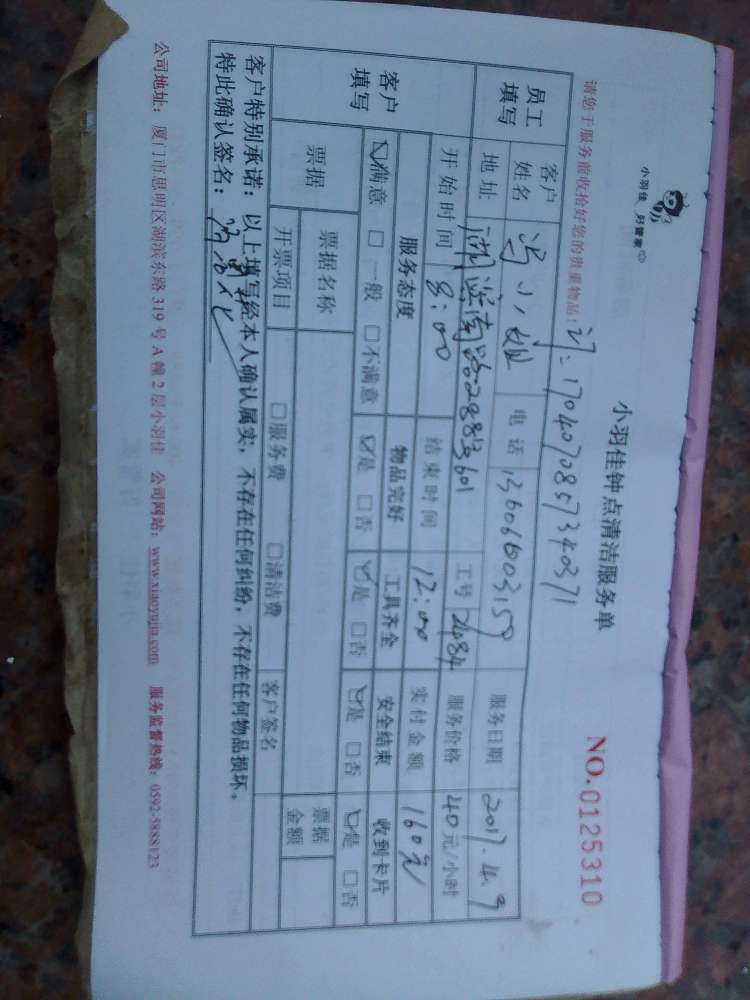 小羽佳 好管家
小羽佳钟点清洁服务单
NO.0125310
请您于服务前收拾好您的贵重物品!
订: 1704070857340371
员工填写 客户姓名 小姐 电话 服务日期 2017.4.9
地址 湖滨南路288号601 工号 服务价格 40元/小时
开始时间 8:00 结束时间 12:00 实付金额 160元
客户填写 服务态度 物品完好 工具齐全 安全结束 收到卡片
☑满意 □一般 □不满意 ☑是 □否 ☑是 □否 ☑是 □否 ☑是 □否
票据 票据名称 客户签名 票据金额
开票项目 □服务费 □清洁费
客户特别承诺:以上填写经本人确认属实,不存在任何纠纷,不存在任何物品损坏。
特此确认签名:
公司地址:厦门市思明区湖滨东路319号A幢2层小羽佳 公司网站:www.xiaoyujia.com 服务监督热线:0592-5888123